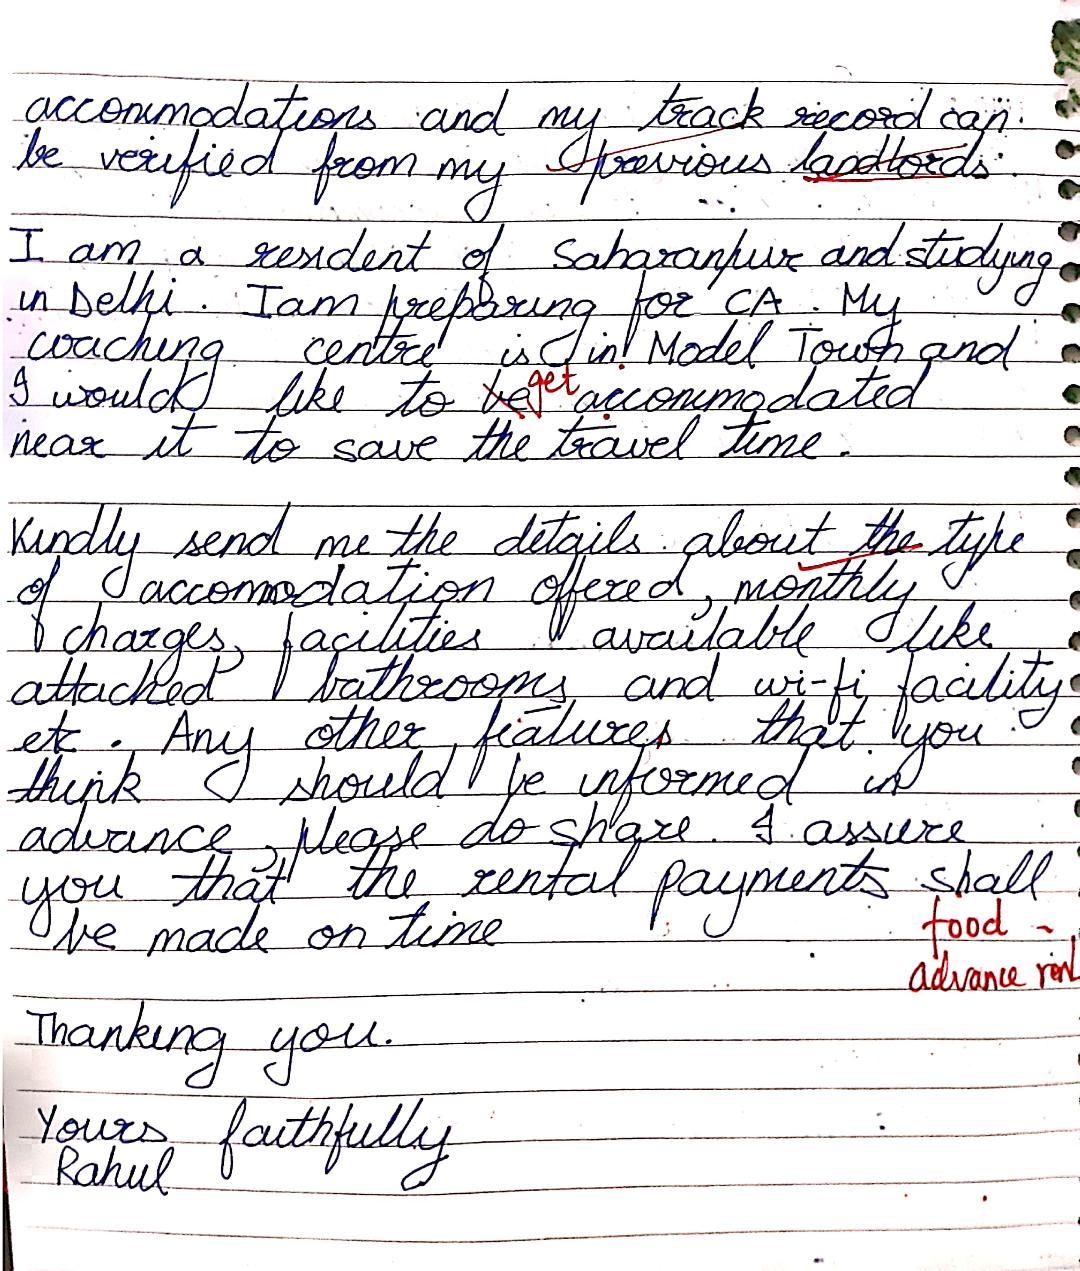 accommodations and my track record can
be verified from my previous landlords.
I am a resident of Saharanpur and studying
in Delhi. I am preparing for CA. My
coaching centre is in Model Town and
I would like to be get accommodated
near it to save the travel time.
Kindly send me the details about the type
of accomodation offered, monthly
charges, facilities available like
attached bathrooms and wi-fi facility
etc. Any other features that you
think I should be informed in
advance, please do share. I assure
you that the rental payments shall
be made on time
food -
advance rent
Thanking you.
Yours faithfully
Rahul